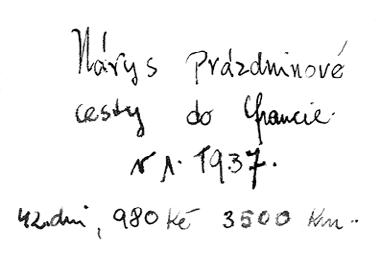 Nárys Prázdninové
cesty do Francie.
v r. 1937.
42 dni, 980 Kč 3500 Km.